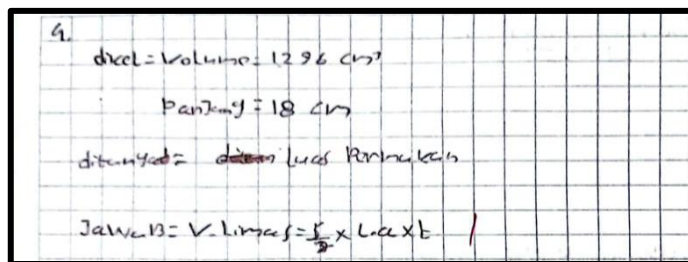 4.
diket = Volume = 1296 cm³
Panjang = 18 cm
ditanyad = Luas Permukaan
Jawab = V. Limas = 5/3 x L.a x t